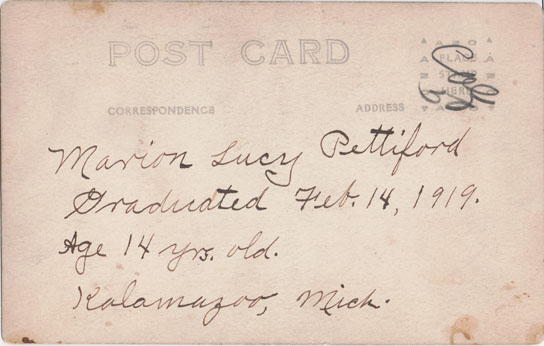 POST CARD
CORRESPONDENCE
ADDRESS
PLACE
STAMP
HERE
Marion Lucy Pettiford
Graduated Feb. 14, 1919.
Age 14 yrs. old.
Kalamazoo, Mich.